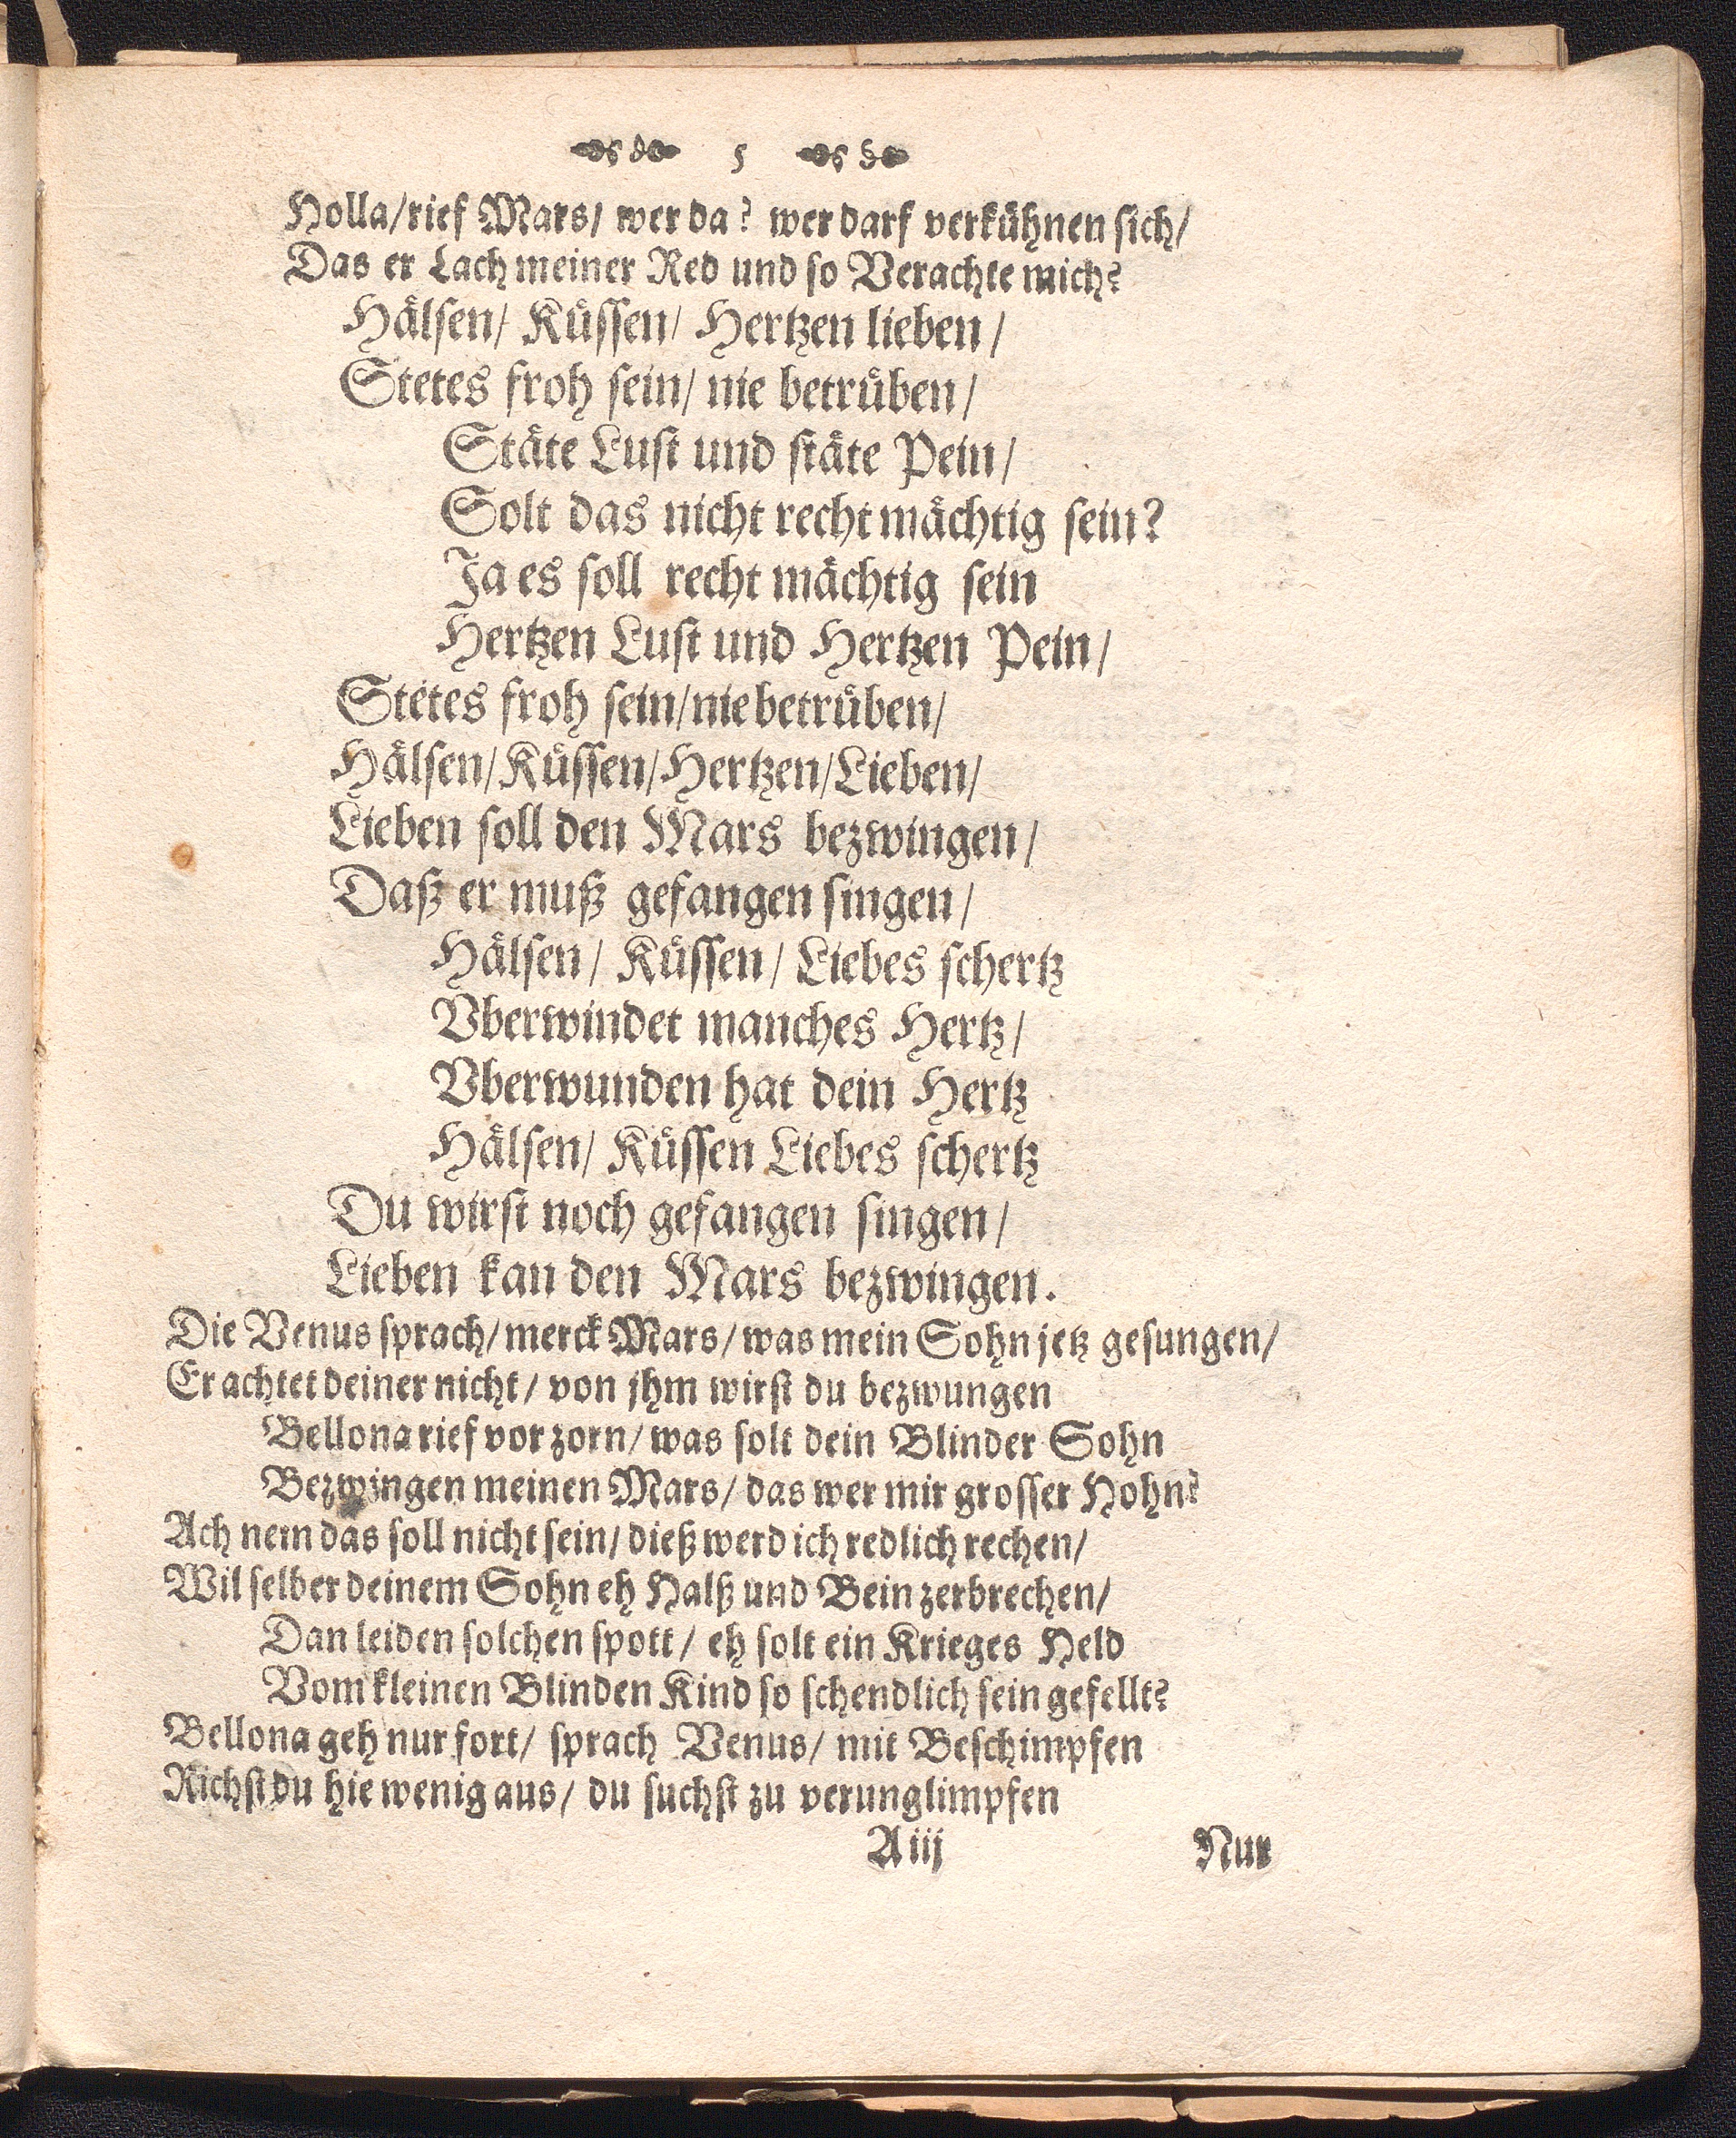 5
Holla/rief Mars/ wer da? wer darf verkühnen sich/
Das er Lach meiner Red und so Verachte mich?
Hälsen/ Küssen/ Hertzen lieben/
Stetes froh sein/ nie betrüben/
Stäte Lust und stäte Pein/
Solt das nicht recht mächtig sein?
Ja es soll recht mächtig sein
Hertzen Lust und Hertzen Pein/
Stetes froh sein/nie betrüben/
Hälsen/Küssen/Hertzen/Lieben/
Lieben soll den Mars bezwingen/
Daß er muß gefangen singen/
Hälsen/ Küssen/ Liebes schertz
Vberwindet manches Hertz/
Vberwunden hat dein Hertz
Hälsen/ Küssen Liebes schertz
Du wirst noch gefangen singen/
Lieben kan den Mars bezwingen.
Die Venus sprach/ merck Mars/ was mein Sohn jetz gesungen/
Er achtet deiner nicht/ von jhm wirst du bezwungen
Bellona rief vor zorn/ was solt dein Blinder Sohn
Bezwingen meinen Mars/ das wer mir grosser Hohn?
Ach nein das soll nicht sein/ dieß werd ich redlich rechen/
Wil selber deinem Sohn eh Halß und Bein zerbrechen/
Dan leiden solchen spott/ eh solt ein Krieges Held
Vom kleinen Blinden Kind so schendlich sein gefellt?
Bellona geh nur fort/ sprach Venus/ mit Beschimpfen
Richst du hie wenig aus/ du suchst zu verunglimpfen
A iij Nur